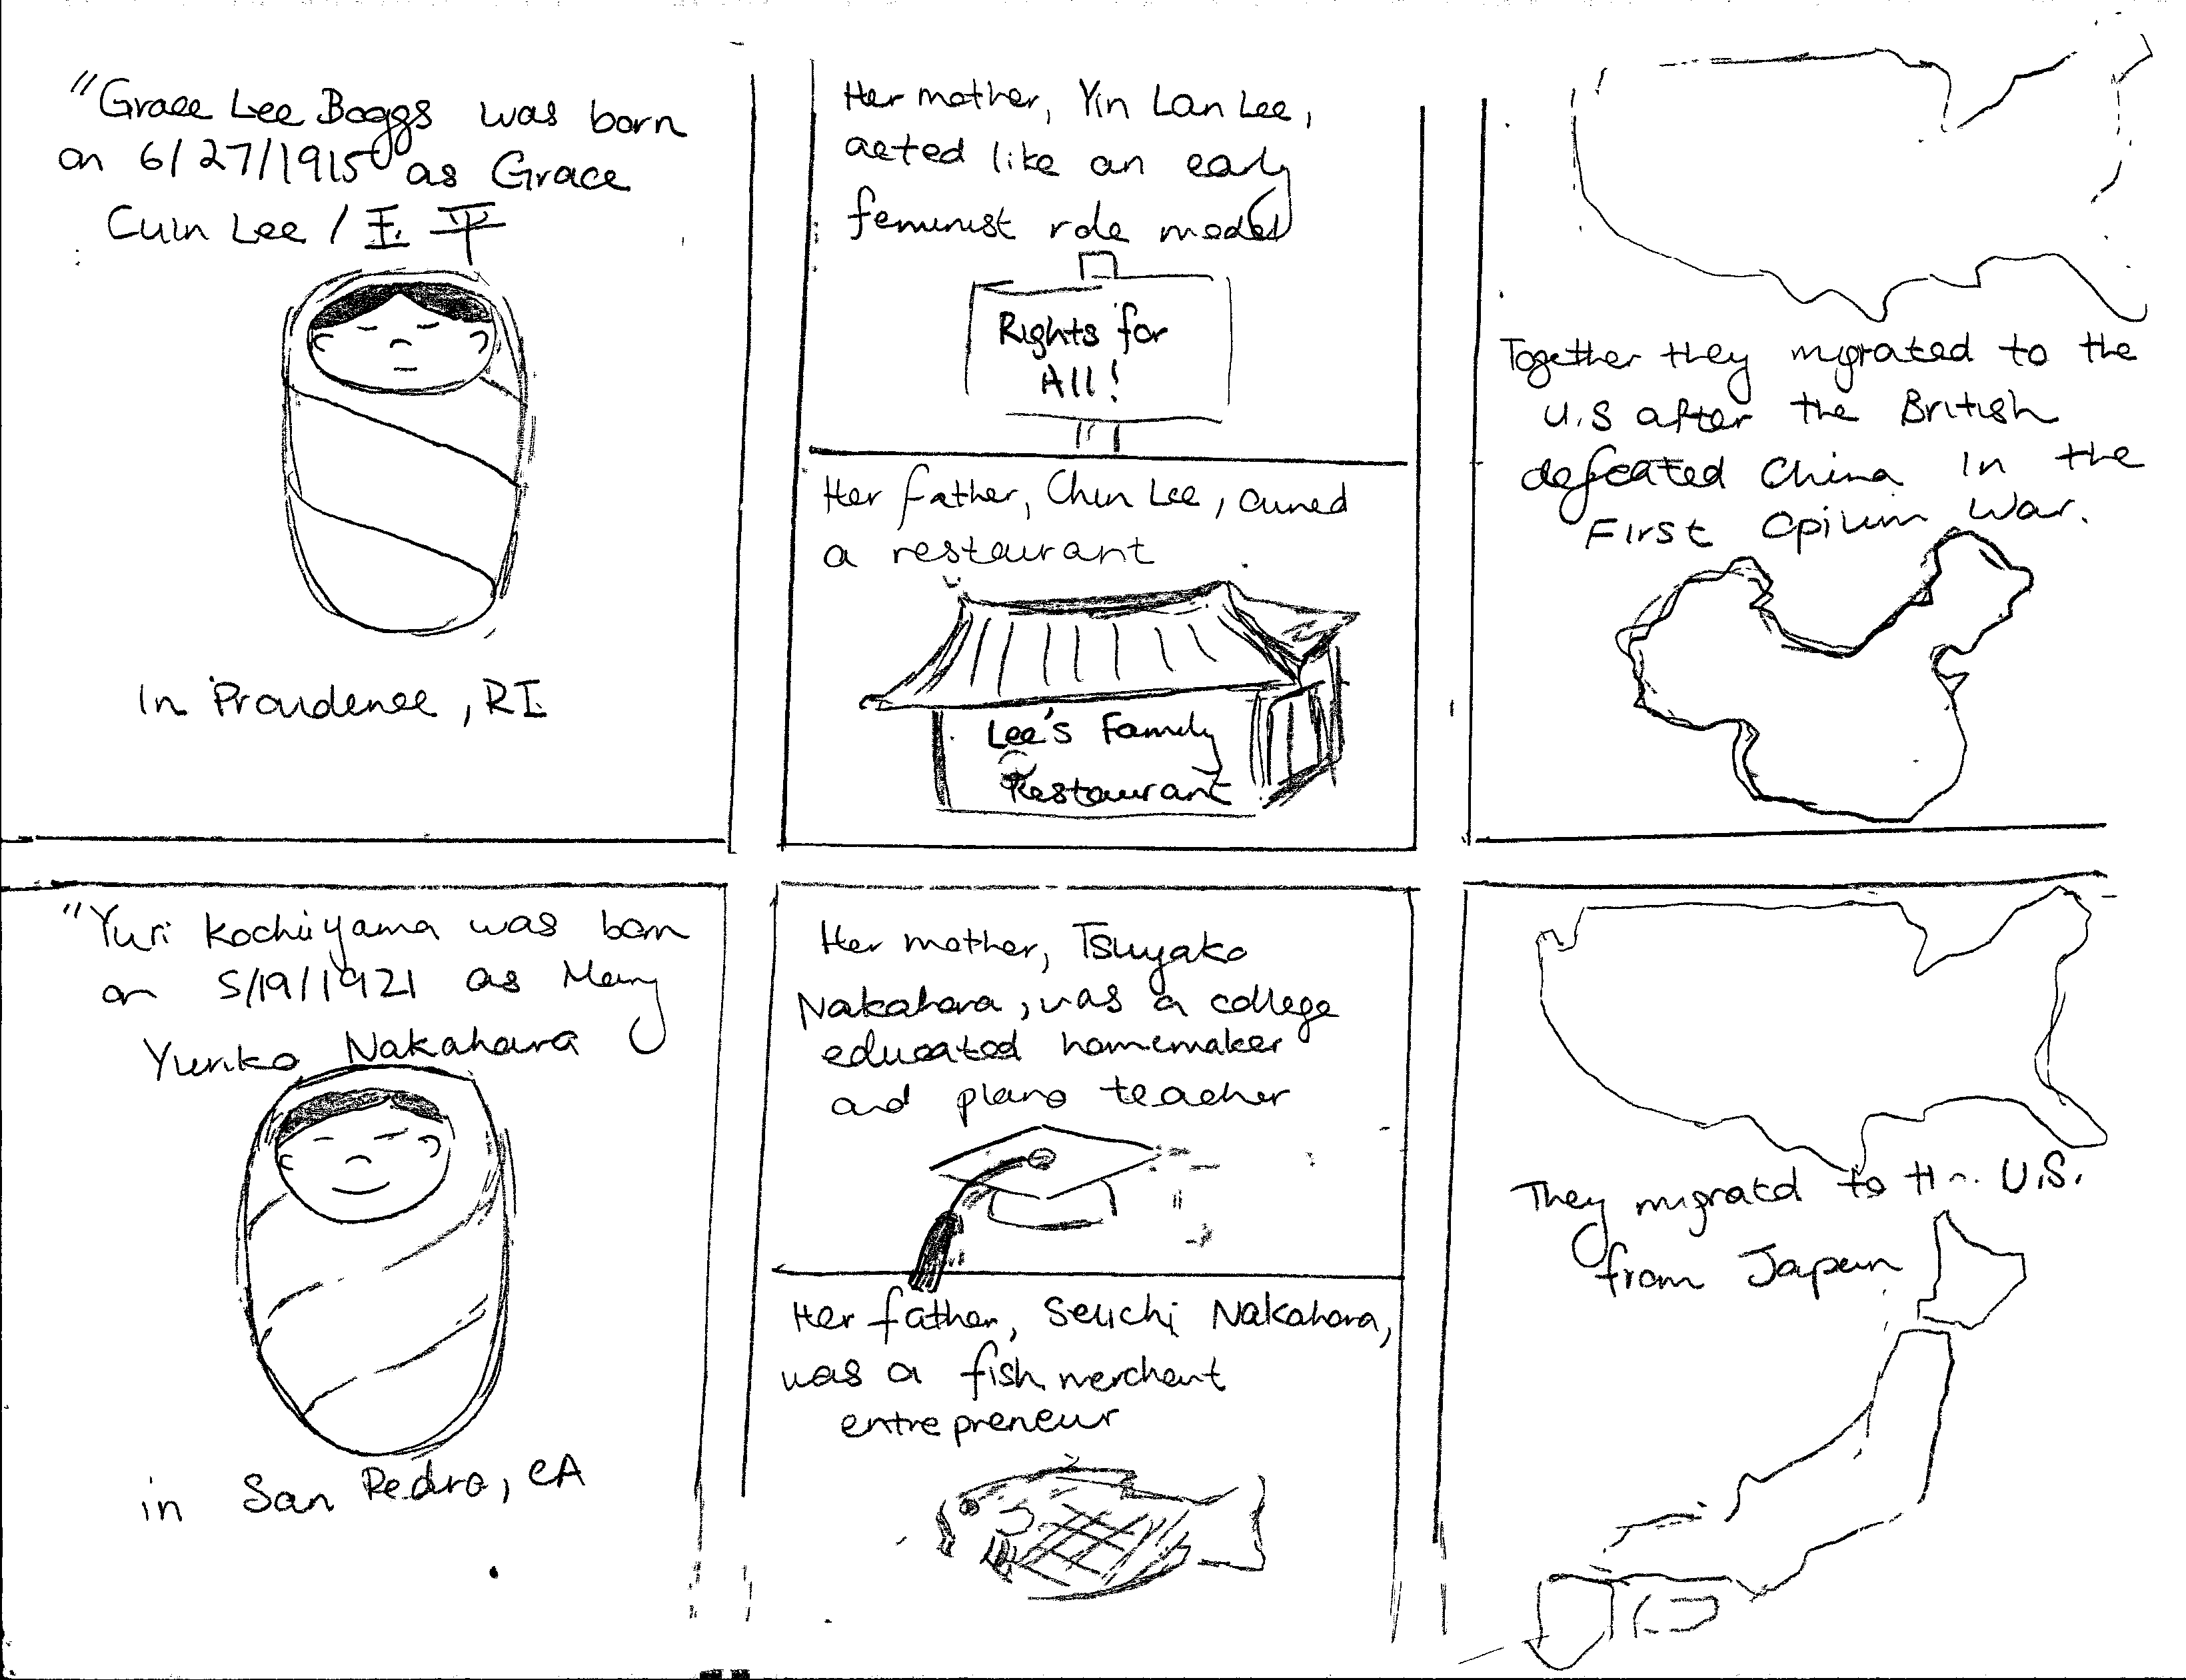 "Grace Lee Boggs was born
on 6/27/1915 as Grace
Cuin Lee / 玉 平
In Providence, RI
Her mother, Yin Lan Lee,
acted like an early
feminist role model
Rights for
All!
Her father, Chin Lee, owned
a restaurant
Lee's Family
Restaurant
Together they migrated to the
U.S after the British
defeated China In the
First Opium War.
"Yuri Kochiiyama was born
on 5/19/1921 as Mary
Yuriko Nakahara
in San Pedro, CA
Her mother, Tsuyako
Nakahara, was a college
educated homemaker
and piano teacher
Her father, Seiichi Nakahara,
was a fish merchant
entrepreneur
They migratd to the U.S.
from Japan